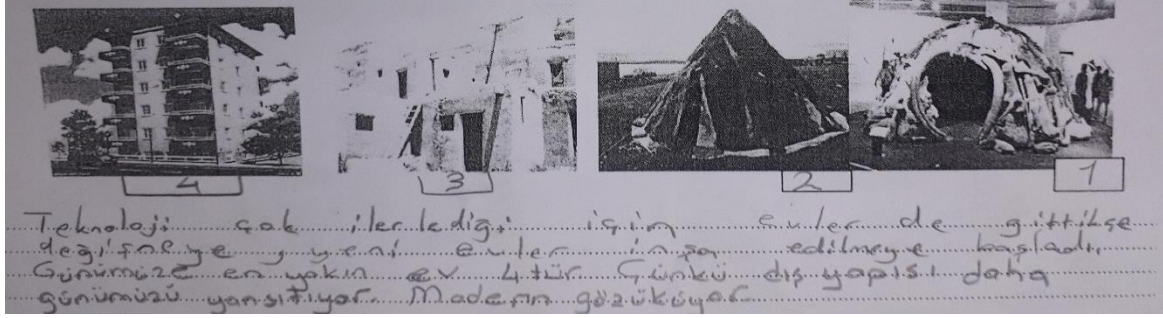 4 3 2 1
Teknoloji çok ilerlediği için evler de gittikçe
değişmeye, yeni evler inşa edilmeye başladı.
Günümüze en yakın ev 4tür. Çünkü dış yapısı daha
günümüzü yansıtıyor. Modern gözüküyor.